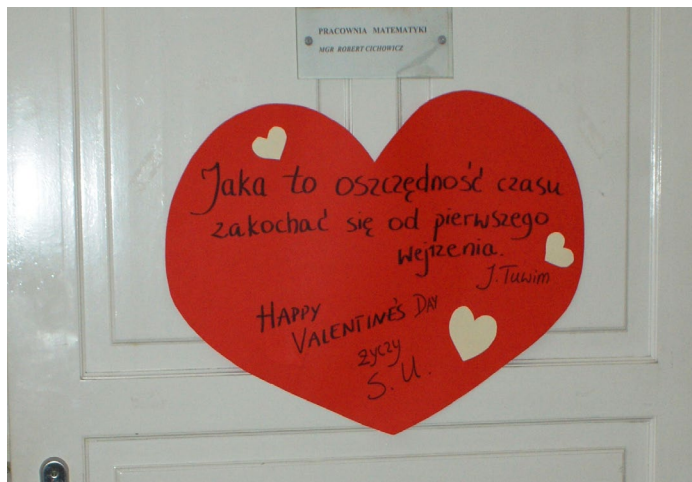 PRACOWNIA MATEMATYKI
MGR ROBERT CICHOWICZ
Jaka to oszczędność czasu
zakochać się od pierwszego
wejrzenia.
J. Tuwim
HAPPY
VALENTINE'S DAY
życzy
S. U.